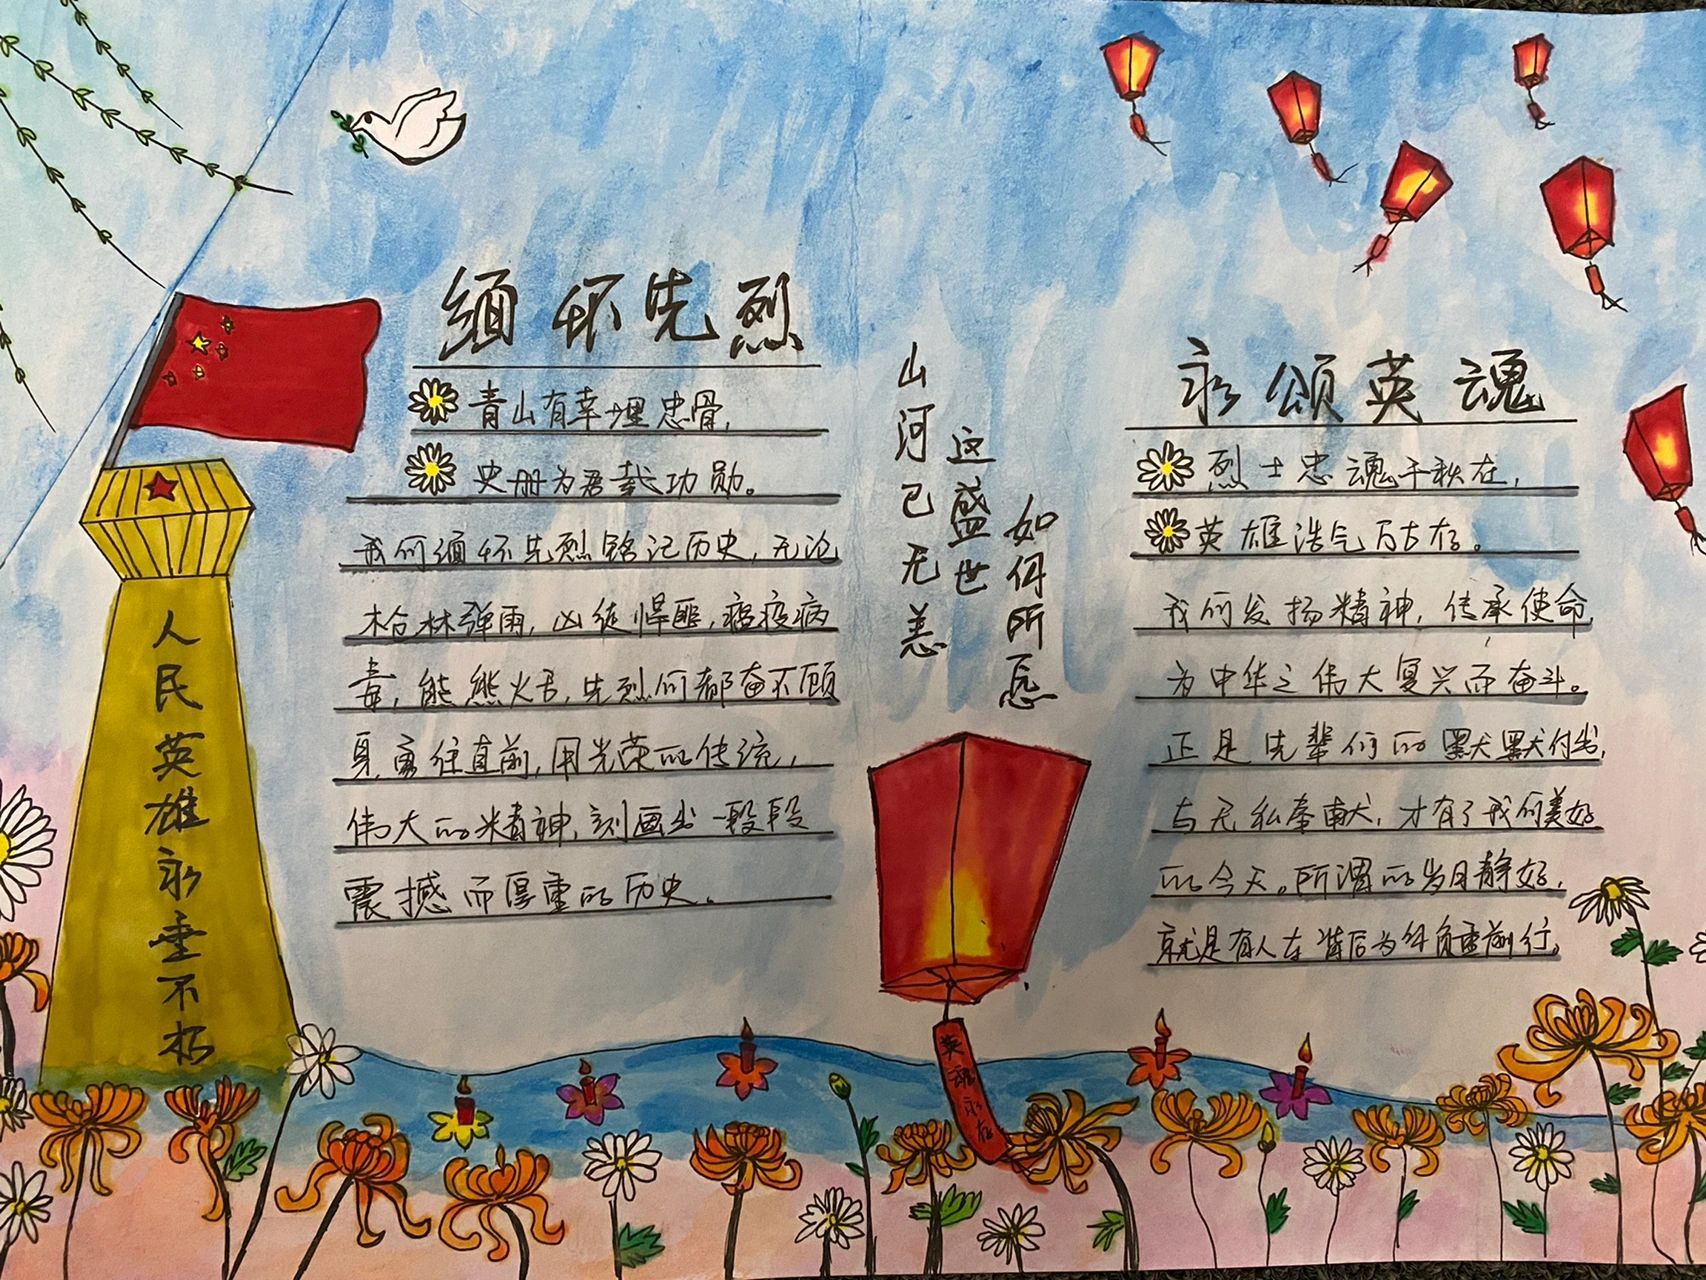 缅怀先烈
青山有幸埋忠骨，
史册为君载功勋。
我们缅怀先烈铭记历史，无论
枪林弹雨，凶徒悍匪，瘟疫病
毒，熊熊火舌，先烈们都奋不顾
身，勇往直前，用光荣的传统，
伟大的精神，刻画出一段段
震撼而厚重的历史。
人民英雄永垂不朽
山河已无恙
这盛世
如你所愿
英魂永存
永颂英魂
烈士忠魂千秋在，
英雄浩气万古存。
我们发扬精神，传承使命，
为中华之伟大复兴而奋斗。
正是先辈们的默默付出，
与无私奉献，才有了我们美好
的今天。所谓的岁月静好，
就是有人在背后为你负重前行。